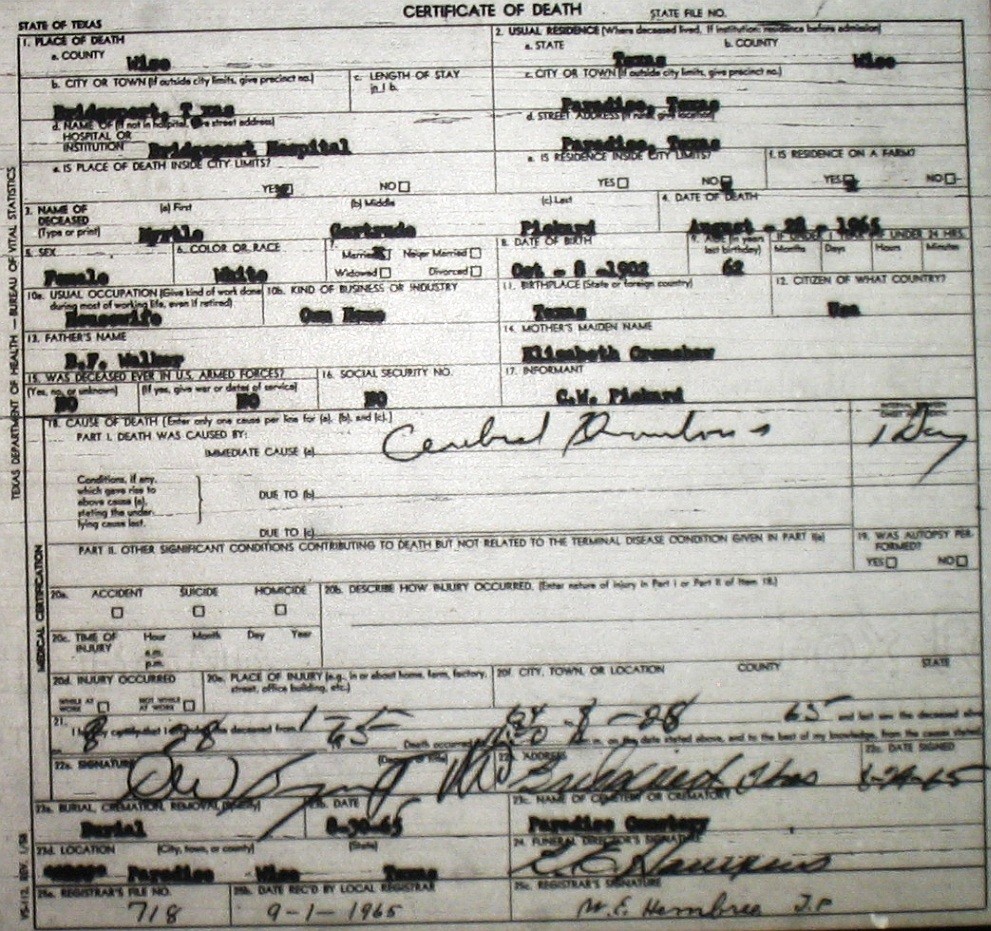 CERTIFICATE OF DEATH
STATE FILE NO.
STATE OF TEXAS
TEXAS DEPARTMENT OF HEALTH — BUREAU OF VITAL STATISTICS
1. PLACE OF DEATH
a. COUNTY
Wise
2. USUAL RESIDENCE (Where deceased lived. If institution: residence before admission)
a. STATE
Texas
b. COUNTY
Wise
b. CITY OR TOWN (If outside city limits, give precinct no.)
Bridgeport, Texas
c. LENGTH OF STAY
in 1 b.
c. CITY OR TOWN (If outside city limits, give precinct no.)
Paradise, Texas
d. NAME OF (If not in hospital, give street address)
HOSPITAL OR
INSTITUTION
Bridgeport Hospital
d. STREET ADDRESS (If rural, give location)
Paradise, Texas
e. IS PLACE OF DEATH INSIDE CITY LIMITS?
YES NO
e. IS RESIDENCE INSIDE CITY LIMITS?
YES NO
f. IS RESIDENCE ON A FARM?
YES NO
3. NAME OF
DECEASED
(Type or print)
(a) First
Myrtle
(b) Middle
Gertrude
(c) Last
Pickard
4. DATE OF DEATH
August - 28 - 1965
5. SEX
Female
6. COLOR OR RACE
White
7.
Married Never Married
Widowed Divorced
8. DATE OF BIRTH
Oct - 8 -1902
9. AGE (In years
last birthday)
62
UNDER 24 HRS.
Months Days Hours Minutes
10a. USUAL OCCUPATION (Give kind of work done
during most of working life, even if retired)
Housewife
10b. KIND OF BUSINESS OR INDUSTRY
Own Home
11. BIRTHPLACE (State or foreign country)
Texas
12. CITIZEN OF WHAT COUNTRY?
Usa
13. FATHER'S NAME
B.F. Walker
14. MOTHER'S MAIDEN NAME
Elizabeth Crenshaw
15. WAS DECEASED EVER IN U.S. ARMED FORCES?
(Yes, no, or unknown)
NO
(If yes, give war or dates of service)
NO
16. SOCIAL SECURITY NO.
NO
17. INFORMANT
C.W. Pickard
MEDICAL CERTIFICATION
18. CAUSE OF DEATH (Enter only one cause per line for (a), (b), and (c).)
PART I. DEATH WAS CAUSED BY:
IMMEDIATE CAUSE (a)
Cerebral Thrombosis
1 Day
Conditions, if any,
which gave rise to
above cause (a),
stating the under-
lying cause last.
DUE TO (b)
DUE TO (c)
PART II. OTHER SIGNIFICANT CONDITIONS CONTRIBUTING TO DEATH BUT NOT RELATED TO THE TERMINAL DISEASE CONDITION GIVEN IN PART I(a)
19. WAS AUTOPSY PER-
FORMED?
YES NO
20a. ACCIDENT SUICIDE HOMICIDE
20b. DESCRIBE HOW INJURY OCCURRED. (Enter nature of injury in Part I or Part II of Item 18.)
20c. TIME OF
INJURY
Hour Month Day Year
a.m.
p.m.
20d. INJURY OCCURRED
WHILE AT
WORK
NOT WHILE
AT WORK
20e. PLACE OF INJURY (e.g., in or about home, farm, factory,
street, office building, etc.)
20f. CITY, TOWN, OR LOCATION COUNTY STATE
21. I hereby certify that I attended the deceased from
8-28 65
and last saw the deceased
8 28
Death occurred
m. on the date stated above, and to the best of my knowledge, from the causes stated
22a. SIGNATURE
22b. ADDRESS
Bridgeport Texas
22c. DATE SIGNED
23a. BURIAL, CREMATION, REMOVAL (Specify)
Burial
23b. DATE
8-30-65
23c. NAME OF CEMETERY OR CREMATORY
Paradise Cemetery
23d. LOCATION (City, town, or county) (State)
Paradise Wise Texas
24. FUNERAL DIRECTOR'S SIGNATURE
25a. REGISTRAR'S FILE NO.
718
25b. DATE REC'D BY LOCAL REGISTRAR
9-1-1965
25c. REGISTRAR'S SIGNATURE
W.E. Hembree J.P
VS-112, REV. 1/58